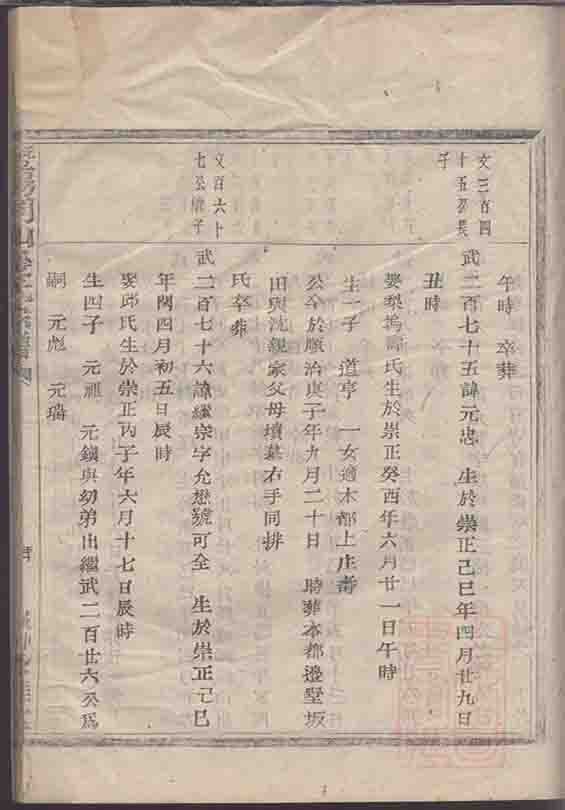 午時　卒葬
文三百四
十五公長
子
武二百七十五諱元忠　生於崇正己巳年四月廿九日
丑時
娶梨塢譚氏生於崇正癸酉年六月廿一日午時
生一子　道亨　一女適本都上庄
公今於順治庚子年九月二十日　時葬本都邉墅坂
田與沈親家父母墳墓右手同排
氏卒葬
文百六十
七公長子
武二百七十六諱繼宗字允懋號可全　生於崇正己巳
年閏四月初五日辰時
娶邱氏生於崇正丙子年六月十七日辰時
生四子　元　元鎭與幼弟出繼武二百廿六公爲
嗣　元彪　元瑞